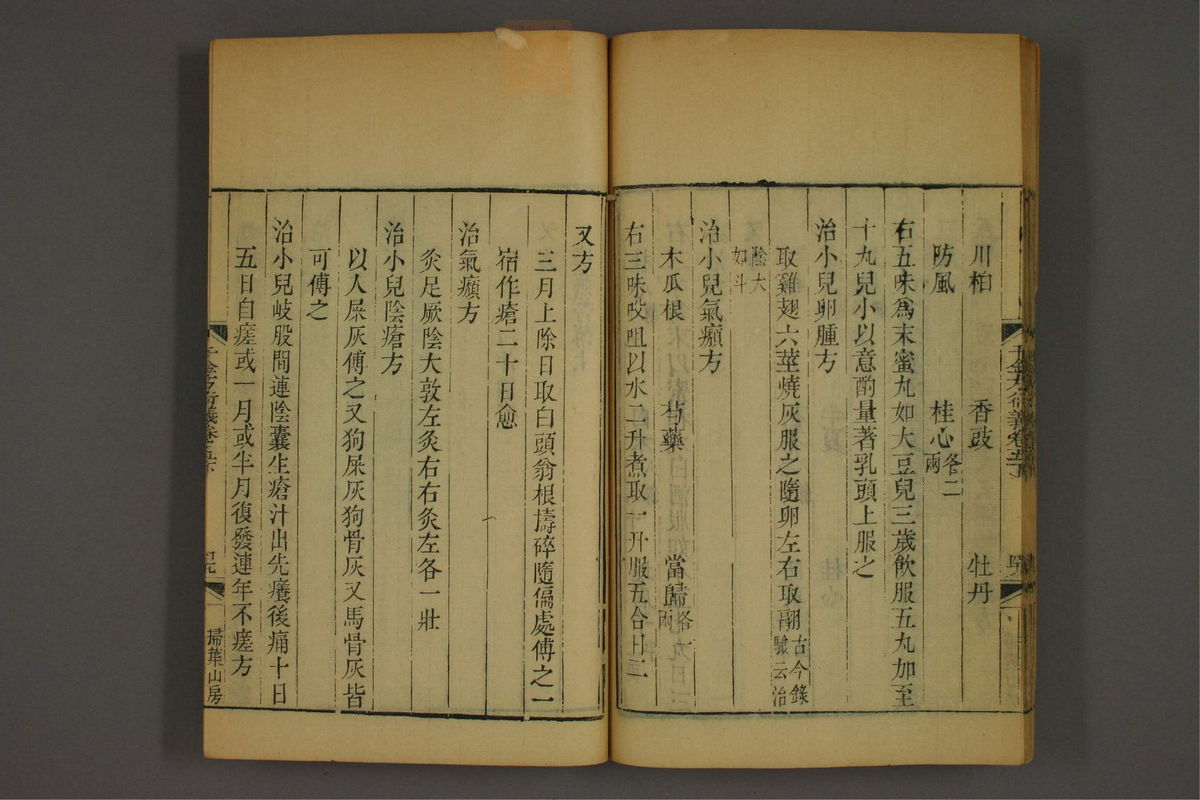 川柏　香豉　牡丹
防風　桂心各二兩
右五味爲末蜜丸如大豆兒三歲飲服五丸加至
十丸兒小以意酌量著乳頭上服之
治小兒卵腫方
取雞翅六莖燒灰服之隨卵左右取翮古今錄驗云治
陰大如斗
治小兒氣㿗方
木瓜根　芎藥　當歸各一兩
右三味㕮咀以水二升煮取一升服五合日二
千金方衍義卷五下
又方
三月上除日取白頭翁根擣碎隨偏處傅之一
宿作瘡二十日愈
治氣㿗方
灸足厥陰大敦左灸右右灸左各一壯
治小兒陰瘡方
以人屎灰傅之又狗屎灰狗骨灰又馬骨灰皆
可傅之
治小兒歧股間連陰囊生瘡汁出先癢後痛十日
五日自瘥或一月或半月復發連年不瘥方
千金方衍義卷五下
掃葉山房